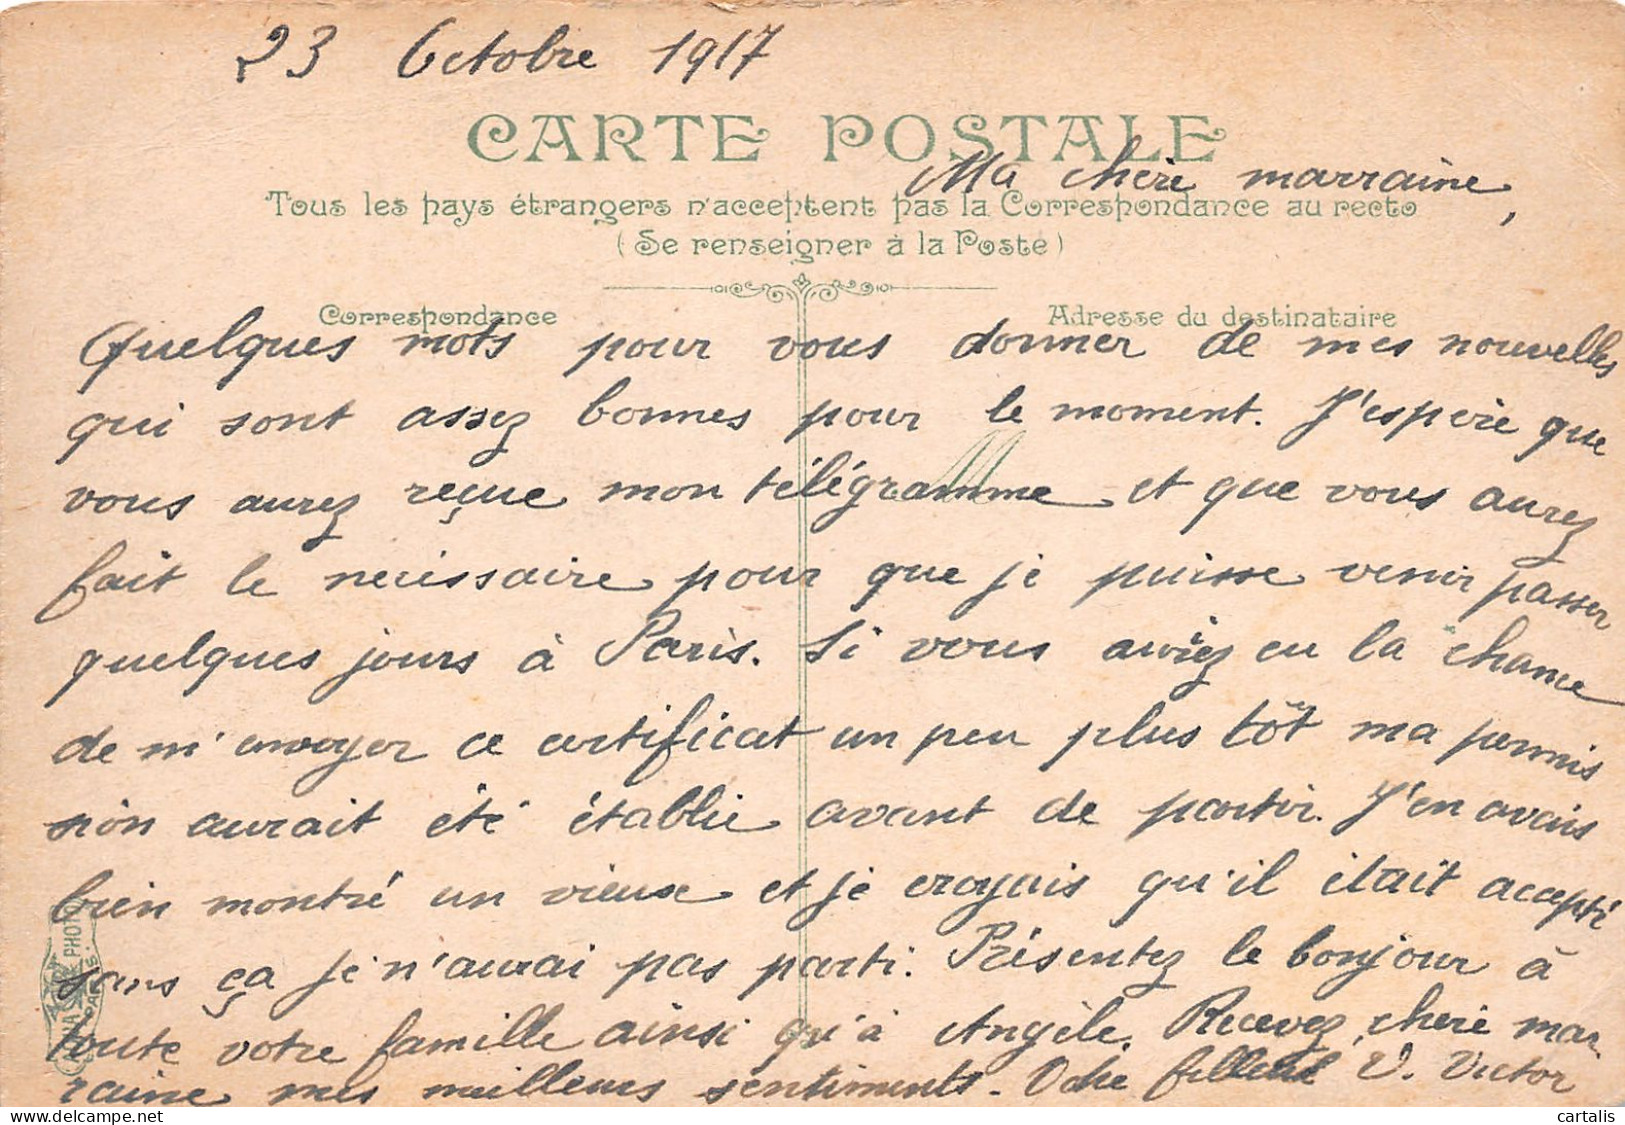 23 Octobre 1917
CARTE POSTALE
Ma chère marraine,
Tous les pays étrangers n'acceptent pas la Correspondance au recto
(Se renseigner à la Poste)
Correspondance
Adresse du destinataire
Quelques mots pour vous donner de mes nouvelles
qui sont assez bonnes pour le moment. J'espère que
vous aurez reçue mon télégramme et que vous aurez
fait le necissaire pour que je puisse venir passer
quelques jours à Paris. Si vous aviez eu la chance
de m'envoyer ce certificat un peu plus tôt ma permis
sion aurait été établie avant de partir. J'en avais
bien montré un vieux et je croyais qu'il était accepté
sans ça je n'aurai pas parti. Présentez le bonjour à
toute votre famille ainsi qu'à Angèle. Recevez, chère mar
raine mes meilleurs sentiments. filleul V. Victor
PHOTO
PARIS
cartalis